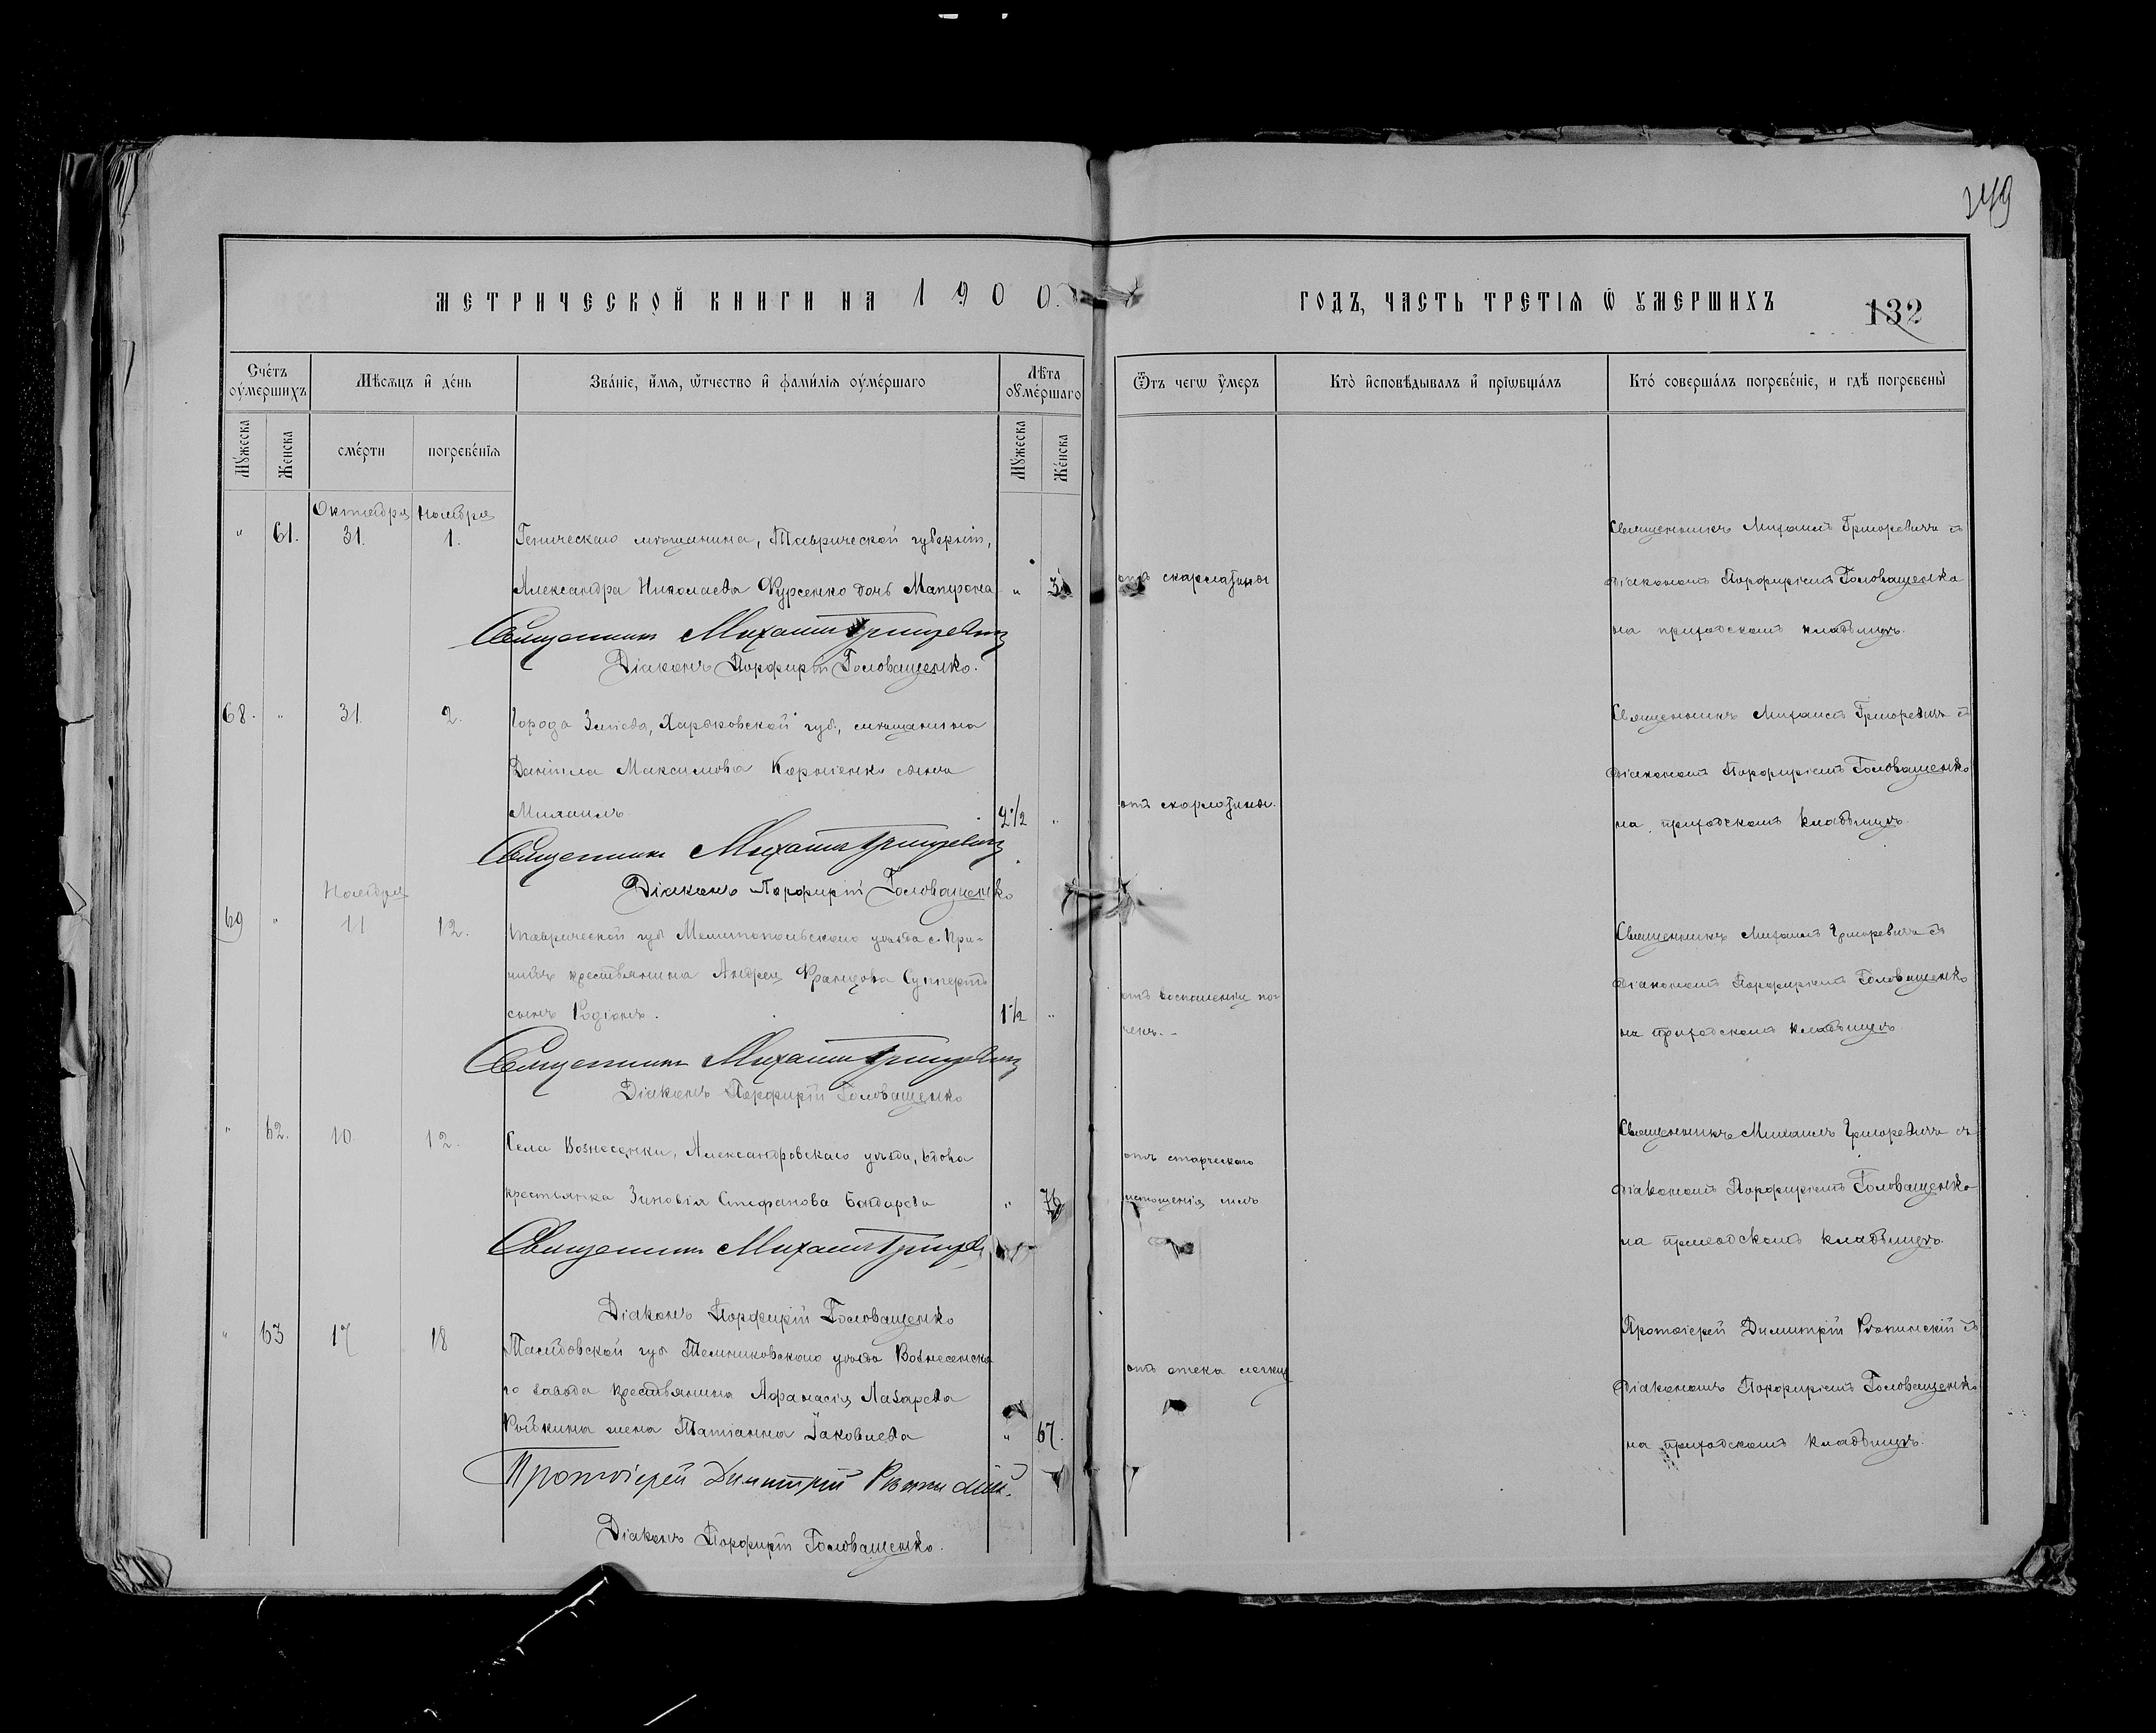 249
МЕТРИЧЕСКОЙ КНИГИ НА 1900.
ГОДЪ, ЧАСТЬ ТРЕТІѦ Ѿ УМЕРШИХЪ
132
Счетъ оумершихъ
Мѣсѧцъ и день
Званіе, имѧ, ѿтчество и фамиліѧ оумершаго
Лѣта оумершаго
Ѿтъ чегѡ умеръ
Кто исповѣдывалъ и пріѡбщалъ
Кто совершалъ погребеніе, и гдѣ погребены
Мужеска
Женска
смерти
погребеніѧ
Мужеска
Женска
Октября Ноября
" 61. 31. 1. Геническаго мѣщанина, Таврической губерніи,
Александра Николаева Фурсенко дочь Матрона " 3
отъ скарлатины
Священникъ Михаилъ Григоревичъ съ
діакономъ Порфиріемъ Головащенко
на приходскомъ кладбищѣ.
Священникъ Михаилъ Григоревичъ
Діаконъ Порфирій Головащенко.
68. " 31. 2. Города Зміева, Харьковской губ., мѣщанина
Даніила Максимова Корніенко сынъ
Михаилъ 2 1/2 "
отъ скарлатины.
Священникъ Михаилъ Григоревичъ съ
діакономъ Порфиріемъ Головащенко
на приходскомъ кладбищѣ.
Священникъ Михаилъ Григоревичъ
Діаконъ Порфирій Головащенко
Ноября
69 " 11 12. Таврической губ Мелитопольскаго уѣзда с. При-
шибъ крестьянина Андрея Францова
сынъ Родіонъ. 1 1/2 "
отъ воспаленія по-
чекъ. -
Священникъ Михаилъ Григоревичъ съ
діакономъ Порфиріемъ Головащенко
на приходскомъ кладбищѣ.
Священникъ Михаилъ Григоревичъ
Діаконъ Порфирій Головащенко
" 62. 10. 12. Села Вознесенки, Александровскаго уѣзда, вдова
крестьянка Зиновія Стефанова Бондарева " 76
отъ старческаго
истощенія силъ
Священникъ Михаилъ Григоревичъ съ
діакономъ Порфиріемъ Головащенко
на приходскомъ кладбищѣ.
Священникъ Михаилъ Григоревичъ
Діаконъ Порфирій Головащенко
" 63 17 18 Тамбовской губ Темниковскаго уѣзда Вознесенска-
го завода крестьянина Афанасія Лазарева
жена Татіанна Іаковлева " 67.
отъ отека легкихъ
Протоіерей Димитрій съ
діакономъ Порфиріемъ Головащенко
на приходскомъ кладбищѣ.
Протоіерей Димитрій
Діаконъ Порфирій Головащенко.